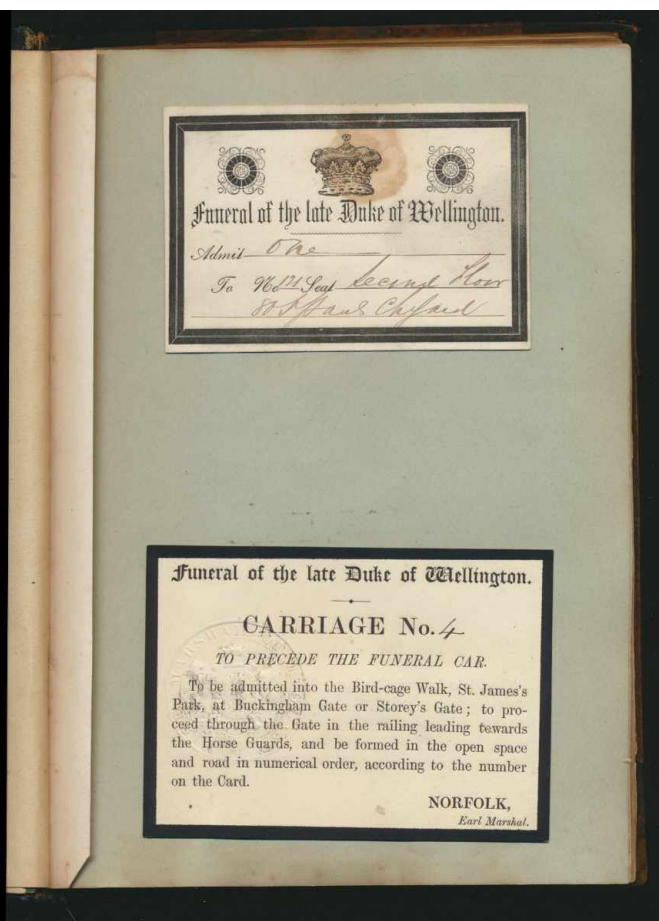 Funeral of the late Duke of Wellington.
Admit One
To No 121 Seat Second Floor
80 St Pauls Chyard
Funeral of the late Duke of Wellington.
CARRIAGE No. 4
TO PRECEDE THE FUNERAL CAR.
To be admitted into the Bird-cage Walk, St. James's
Park, at Buckingham Gate or Storey's Gate; to pro-
ceed through the Gate in the railing leading towards
the Horse Guards, and be formed in the open space
and road in numerical order, according to the number
on the Card.
NORFOLK,
Earl Marshal.